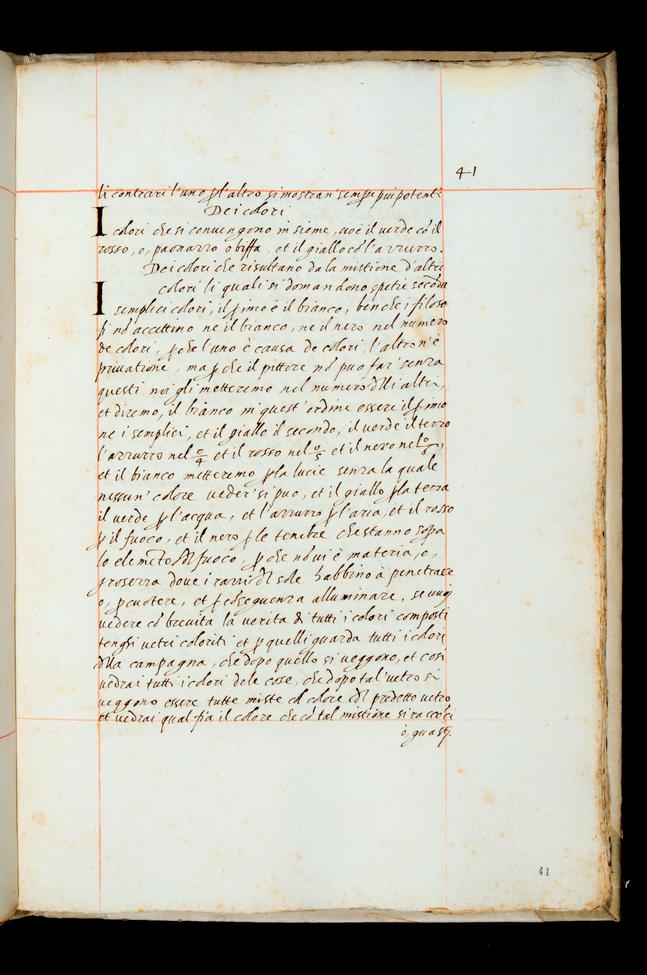 41
li contrari l'uno p̱ l'altro si mostran' sempre piu potenti
Dei colori
I colori che si convengono insieme, cioè il verde cõ il
rosso, o, paonazzo o biffa, et il giallo cõ l'azzurro.
Dei colori che risultano da la mistione d'altri
colori li quali si domandono spetie secõda
I semplici colori, il p̱imo è il bianco, benche i filoso
fi nõ accettino ne il bianco, ne il nero nel numero
de colori, p̱che l'uno è causa de colori, l'altro n'è
privatione, ma p̱che il pittore nõ puo far' senza
questi noi gli metteremo nel numero dlli altri,
et diremo, il bianco in quest' ordine essere il p̱imo
ne i semplici, et il giallo il secondo, il verde il terzo
l'azzurro nel 4º et il rosso nel 5º et il nero nel 6º,
et il bianco metteremo p̱ la lucie senza la quale
nessun' colore veder' si puo, et il giallo p̱ la terra
il verde p̱ l'acqua, et l'azzurro p̱ l'aria, et il rosso
p̱ il fuoco, et il nero p̱ le tenebre che stanno sop̱a
lo elemẽto dl fuoco, p̱che nõ vi è materia, o,
grosezza dove i razzi dl sole habbino à penetrare
o, p̱cuotere, et p̱ cõseguenza alluminare, se vuoi
vedere cõ brevita la verita di tutti i colori composti
tenghi vetri coloriti et p̱ quelli guarda tutti i colori
dlla campagna, che dopo quello si veggono, et cosi
vedrai tutti i colori dele cose, che dopo tal' vetro si
veggono essere tutte miste cl colore dl predetto vetro
et vedrai qual fia il colore che cõ tal mistione si racconci
ò, guasti.
41